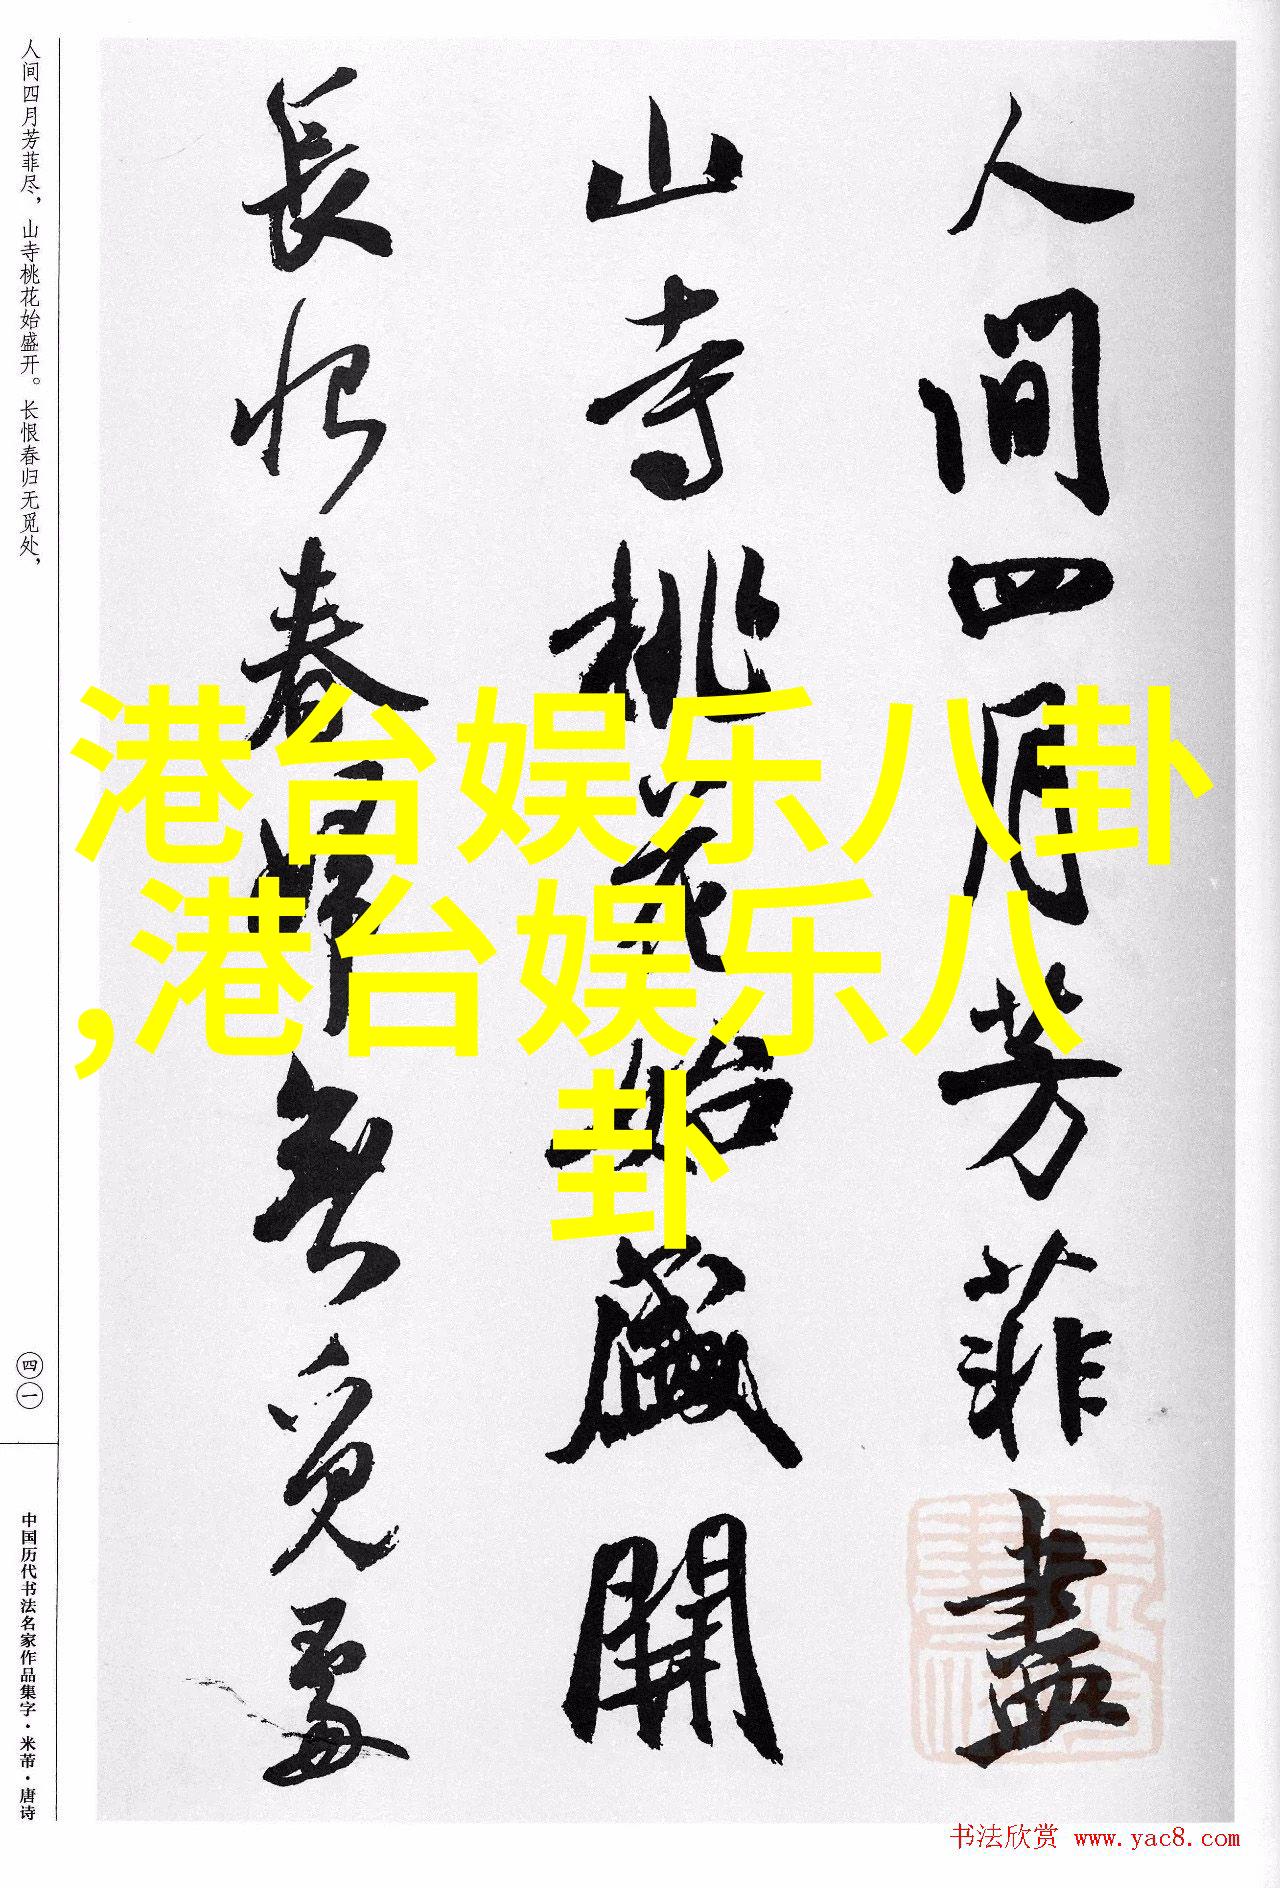 人間四月芳菲盡
山寺桃花始盛開
長恨春歸無覓處
港台娱乐八卦
,港台娱乐八
卦
人间四月芳菲尽，山寺桃花始盛开。长恨春归无觅处，
四一
中国历代书法名家作品集字·米芾·唐诗
书法欣赏 www.yac8.com